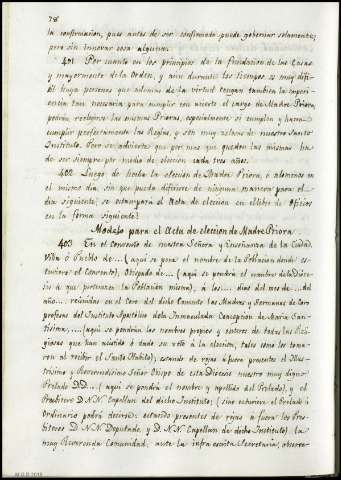 78
la confirmacion, pues antes de ser confirmada puede gobernar solamente;
pero sin innovar cosa alguna.
401 Por cuanto en los principios de la fundacion de las Casas
y mayormente de la Orden, y aun durante los tiempos es muy difi-
cil haya personas que ademas de la virtud tengan tambien la esperi-
encia tan necesaria para cumplir con acierto el cargo de Madre Priora,
podrán reelegirse las mismas Prioras, especialmente si cumplen y hacen
cumplir perfectamente las Reglas, y son muy celosas de nuestro Santo
Instituto. Pero se advierte que por mas que queden las mismas ha
de ser siempre por medio de eleccion cada tres años.
402 Luego de hecha la eleccion de Madre Priora, ó alomenos en
el mismo dia, sin que pueda diferirse de ninguna manera para el
dia siguiente, se estampará el Acta de eleccion en el libro de oficios
en la forma siguiente:
Modelo para el Acta de eleccion de Madre Priora.
403 En el Convento de nuestra Señora y Enseñanza de la Ciudad,
Villa ó Pueblo de ... (aqui se pone el nombre de la Poblacion donde es-
tuviere el Convento), Obispado de ... (aqui se pondrá el nombre de la Dióce-
sis á que pertenece la Poblacion misma), á los ... dias del mes de ... del
año ... reunidas en el Coro del dicho Convento las Madres y Hermanas de Coro
profesas del Instituto Apostólico de la Inmaculada Concepcion de Maria San-
tísima, ... (aqui se pondrán los nombres propios y enteros de todas las Reli-
giosas que han asistido ó dado su voto á la eleccion, tales como los toma-
ron al recibir el Santo Habito); estando de rejas á fuera presentes el Ilus-
trísimo y Reverendísimo Señor Obispo de esta Diócesis nuestro muy digno
Prelado D.D. ... (aqui se pondrá el nombre y apellido del Prelado), y el
Presbítero D. N. N. Capellan del dicho Instituto; (sino estuviere el Prelado ú
Ordinario podrá decirse: estando presentes de rejas á fuera los Pres-
bíteros D. N. N. Deputado, y D. N. N. Capellan de dicho Instituto), la
muy Reverenda Comunidad; ante la infra escrita Secretaria, observa-
M.G.D 2015